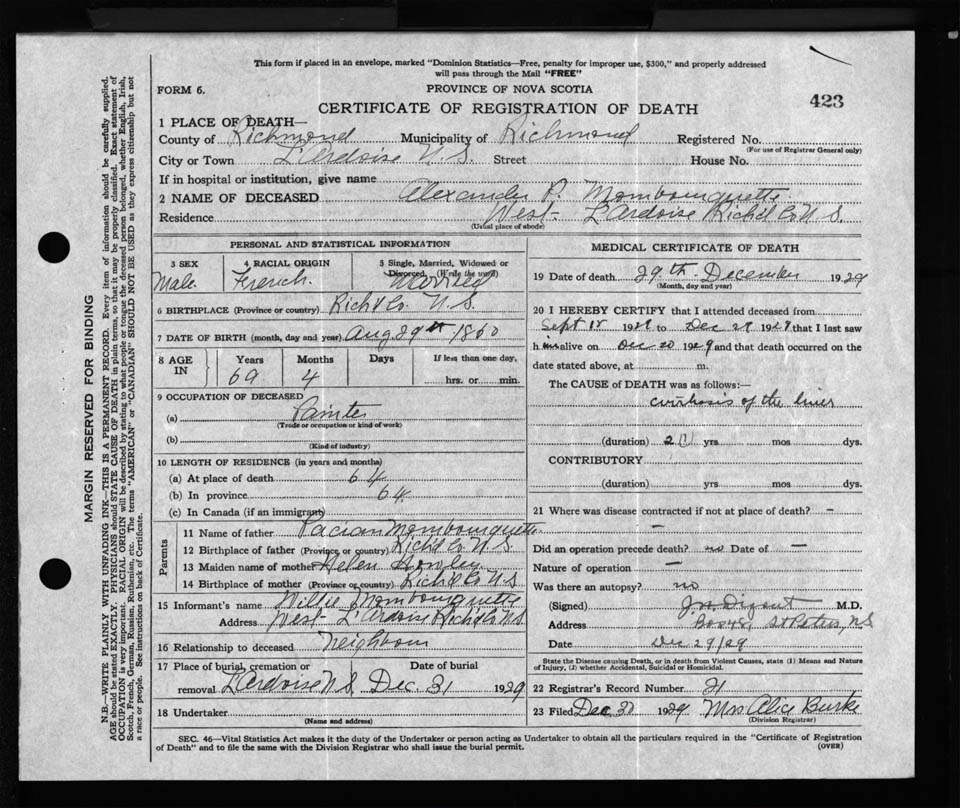 This form if placed in an envelope, marked "Dominion Statistics—Free, penalty for improper use, $300," and properly addressed
will pass through the Mail "FREE"
FORM 6.
PROVINCE OF NOVA SCOTIA
CERTIFICATE OF REGISTRATION OF DEATH
423
1 PLACE OF DEATH—
County of Richmond Municipality of Richmond Registered No.
(For use of Registrar General only)
City or Town L'Ardoise N.S. Street House No.
If in hospital or institution, give name
2 NAME OF DECEASED Alexander P. Mombourquette
Residence West L'Ardoise Rich'd Co N.S.
(Usual place of abode)
PERSONAL AND STATISTICAL INFORMATION
3 SEX
Male
4 RACIAL ORIGIN
French
5 Single, Married, Widowed or
Divorced, (Write the word)
Married
6 BIRTHPLACE (Province or country) Rich'd Co. N.S.
7 DATE OF BIRTH (month, day and year) Aug 29th 1860
8 AGE IN
Years 69
Months 4
Days
If less than one day,
hrs. or min.
9 OCCUPATION OF DECEASED
(a) Painter
(Trade or occupation or kind of work)
(b)
(Kind of industry)
10 LENGTH OF RESIDENCE (in years and months)
(a) At place of death 64
(b) In province 64
(c) In Canada (if an immigrant)
Parents
11 Name of father Pacian Mombourquette
12 Birthplace of father (Province or country) Rich'd Co N.S.
13 Maiden name of mother Helen
14 Birthplace of mother (Province or country) Rich'd Co N.S
15 Informant's name Willie Mombourquette
Address West L'Ardoise Rich'd Co N.S.
16 Relationship to deceased Neighbour
17 Place of burial, cremation or Date of burial
removal L'Ardoise N.S. Dec. 31 1929
18 Undertaker
(Name and address)
MEDICAL CERTIFICATE OF DEATH
19 Date of death 29th December 1929
(Month, day and year)
20 I HEREBY CERTIFY that I attended deceased from
Sept 18 1929 to Dec 29 1929 that I last saw
him alive on Dec 20 1929 and that death occurred on the
date stated above, at m.
The CAUSE of DEATH was as follows:—
cirrhosis of the liver
(duration) 2 yrs mos dys.
CONTRIBUTORY
(duration) yrs mos dys.
21 Where was disease contracted if not at place of death? —
—
Did an operation precede death? no Date of —
Nature of operation —
Was there an autopsy? no
(Signed) M.D.
Address St Peters, N.S
Date Dec 29/29
State the Disease causing Death, or in death from Violent Causes, state (1) Means and Nature
of Injury, (2) whether Accidental, Suicidal or Homicidal.
22 Registrar's Record Number 21
23 Filed Dec 30 1929 Mrs Alice Burke
(Division Registrar)
SEC. 46—Vital Statistics Act makes it the duty of the Undertaker or person acting as Undertaker to obtain all the particulars required in the "Certificate of Registration
of Death" and to file the same with the Division Registrar who shall issue the burial permit.
(OVER)
MARGIN RESERVED FOR BINDING
N.B.—WRITE PLAINLY WITH UNFADING INK—THIS IS A PERMANENT RECORD. Every item of information should be carefully supplied.
AGE should be stated EXACTLY. PHYSICIANS should STATE CAUSE OF DEATH in plain terms, so that it may be properly classified. Exact statement of
OCCUPATION is very important. RACIAL ORIGIN will be described by stating to what people or tongue the deceased person belonged, whether English, Irish,
Scotch, French, German, Russian, Ruthenian, etc. The terms "AMERICAN" or "CANADIAN" SHOULD NOT BE USED as they express citizenship but not
a race or people. See instructions on back of Certificate.